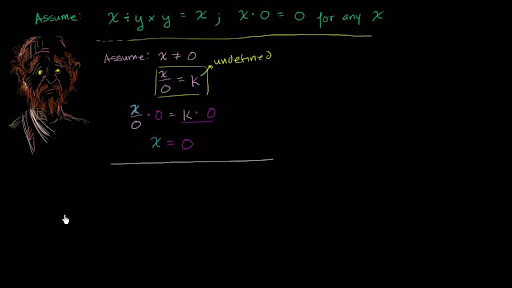 Assume: x ÷ y × y = x ; x · 0 = 0 for any x
Assume: x ≠ 0
undefined
x/0 = k
x/0 · 0 = k · 0
x = 0